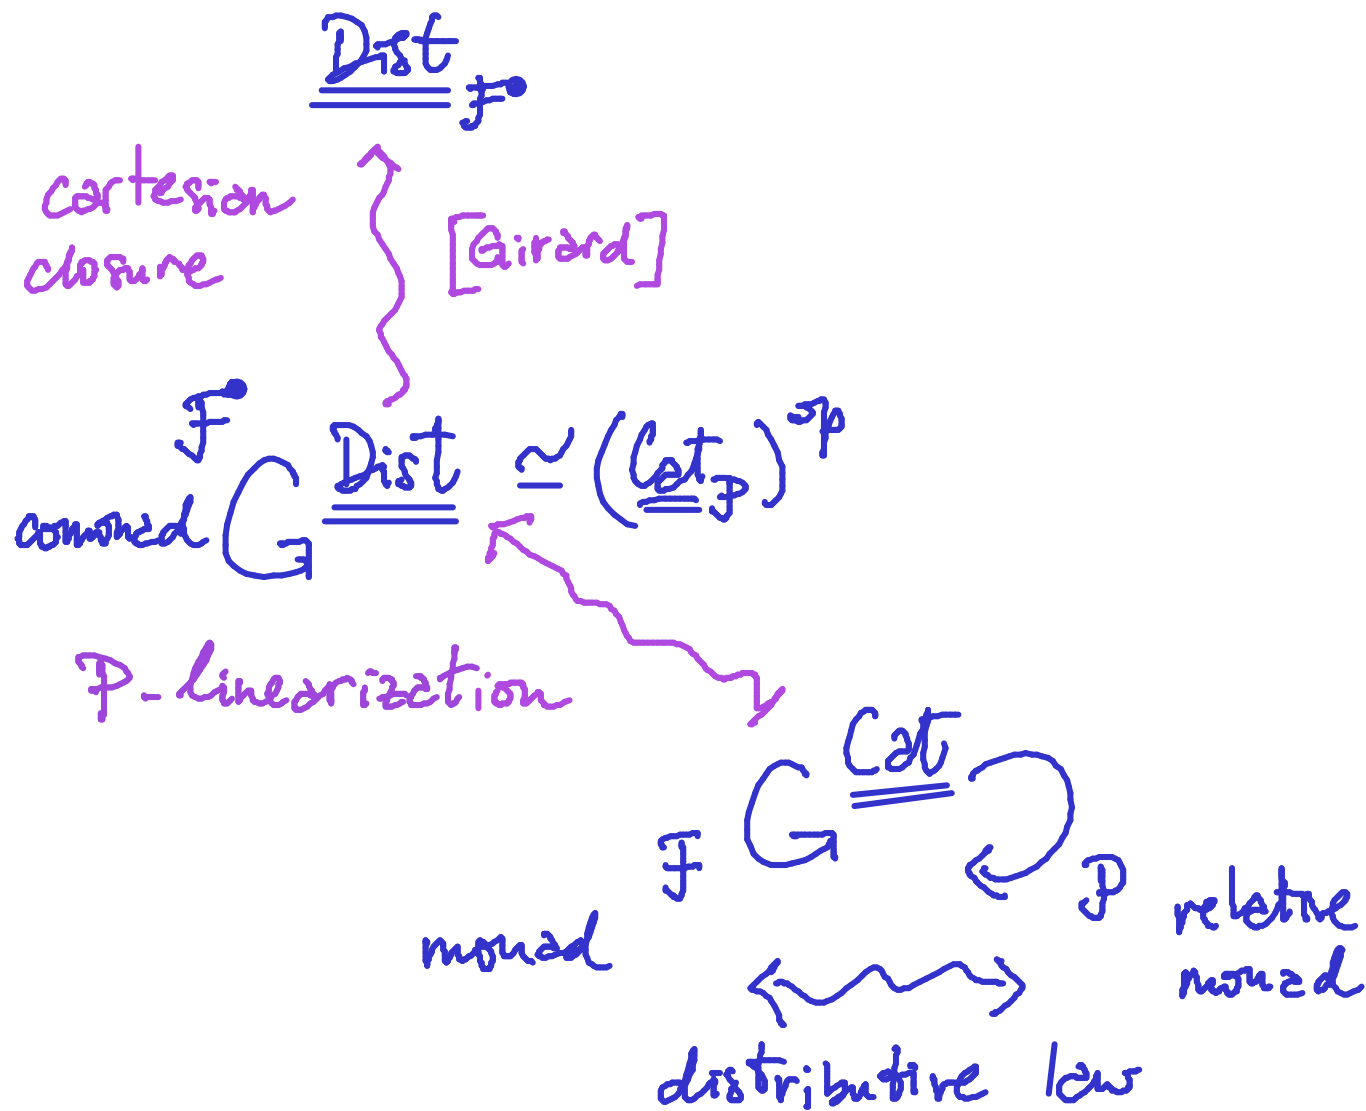 Dist F•
cartesian
closure
[Girard]
F•
comonad
Dist ≃ (Cat_P)^op
P-linearization
Cat
F
P
monad
relative
monad
distributive law